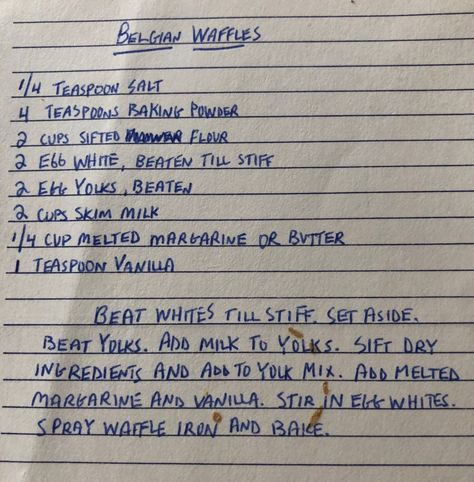 BELGIAN WAFFLES
1/4 TEASPOON SALT
4 TEASPOONS BAKING POWDER
2 CUPS SIFTED FLOUR
2 EGG WHITE, BEATEN TILL STIFF
2 EGG YOLKS, BEATEN
2 CUPS SKIM MILK
1/4 CUP MELTED MARGARINE OR BUTTER
1 TEASPOON VANILLA
BEAT WHITES TILL STIFF. SET ASIDE.
BEAT YOLKS. ADD MILK TO YOLKS. SIFT DRY
INGREDIENTS AND ADD TO YOLK MIX. ADD MELTED
MARGARINE AND VANILLA. STIR IN EGG WHITES.
SPRAY WAFFLE IRON AND BAKE.